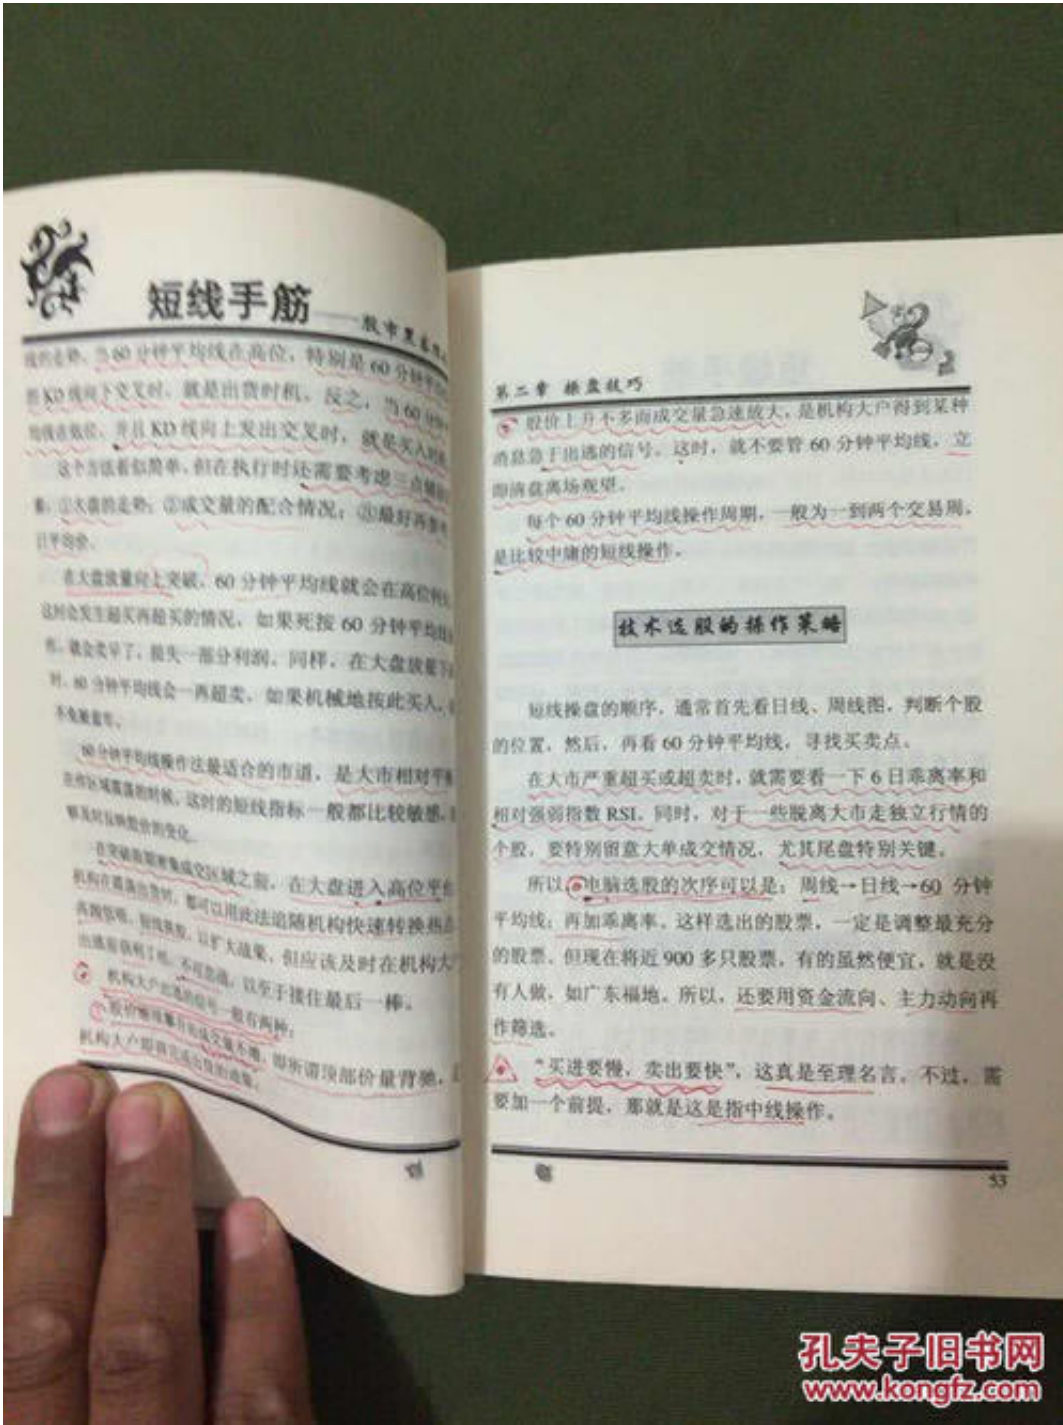 短线手筋——股市黑
线的走势。当60分钟平均线在高位，特别是60分钟平均
KD线向下交叉时，就是出货时机。反之，当60分钟
均线在低位，并且KD线向上发出交叉时，就是买入时机。
这个方法看似简单，但在执行时还需要考虑三点
①大盘的走势；②成交量的配合情况；③最好再参考
日平均价。
在大盘放量向上突破，60分钟平均线就会在高位
这时会发生超买再超买的情况，如果死按60分钟平均线
作，就会卖早了，损失一部分利润。同样，在大盘放量下
时，60分钟平均线会一再超卖，如果机械地按此买入，
不免被套牢。
60分钟平均线操作法最适合的市道，是大市相对平
在作区域震荡的时候，这时的短线指标一般都比较敏感，
够及时反映股价的变化。
在突破前期密集成交区域之前，在大盘进入高位平台
机构在震荡出货时，都可以用此法追随机构快速转换热点
再拥低吸，短线换股，以扩大战果。但应该及时在机构大户
出逃前获利了结，不可恋战，以至于接住最后一棒。
机构大户出逃的信号一般有两种：
①股价继续攀升而成交量不增，即所谓顶部价量背驰，
机构大户即将完成出货的迹象。
第二章 操盘技巧
②股价上升不多而成交量急速放大，是机构大户得到某种
消息急于出逃的信号。这时，就不要管60分钟平均线，立
即清盘离场观望。
每个60分钟平均线操作周期，一般为一到两个交易周，
是比较中庸的短线操作。
技术选股的操作策略
短线操盘的顺序，通常首先看日线、周线图，判断个股
的位置，然后，再看60分钟平均线，寻找买卖点。
在大市严重超买或超卖时，就需要看一下6日乖离率和
相对强弱指数RSI。同时，对于一些脱离大市走独立行情的
个股，要特别留意大单成交情况，尤其尾盘特别关键。
所以，电脑选股的次序可以是：周线→日线→60分钟
平均线；再加乖离率。这样选出的股票，一定是调整最充分
的股票。但现在将近900多只股票，有的虽然便宜，就是没
有人做，如广东福地。所以，还要用资金流向、主力动向再
作筛选。
“买进要慢，卖出要快”，这真是至理名言。不过，需
要加一个前提，那就是这是指中线操作。
53
孔夫子旧书网
www.kongfz.com